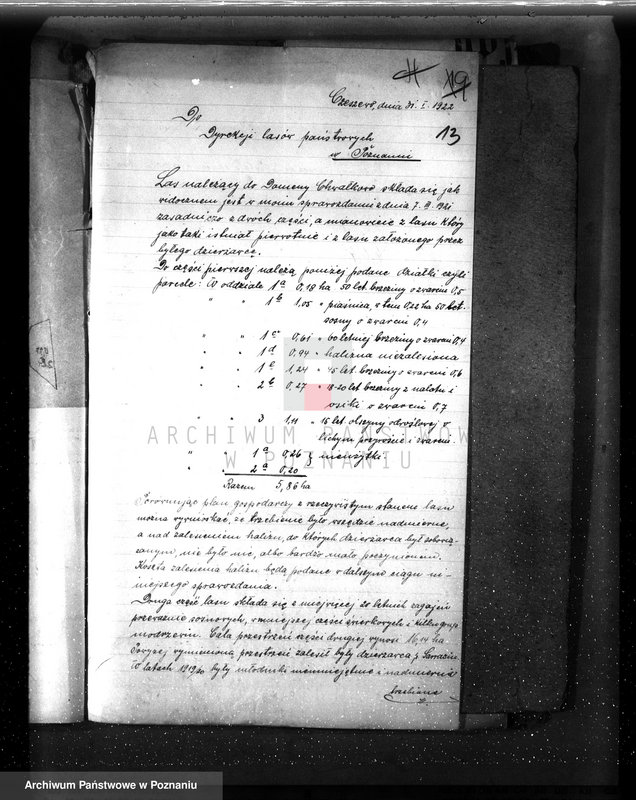 19
Czeszewo, dnia 31. I. 1922
13
Do
Dyrekcji lasów państwowych
w Poznaniu
Las należący do Domeny Chwałkowo składa się jak
widocznem jest w moim sprawozdaniu z dnia 7. 1921
zasadniczo z dwóch części, a mianowicie z lasu który
jako taki istniał pierwotnie i z lasu założonego przez
byłego dzierżawcę.
Do części pierwszej należą poniżej podane działki czyli
parcele: W oddziale 1a 0,18 ha 50 let. brzeziny o zwarciu 0,5
" " 1b 1,05 " piaśnica, w tem 0,22 ha 50 let.
sosny o zwarciu 0,4
" " 1c 0,61 " 60 letniej brzeziny o zwarciu 0,4
" " 1d 0,94 " halizna niezalesiona
" " 1e 1,24 " 45 let. brzeziny o zwarciu 0,6
" " 2b 0,27 " 18-20 let. brzeziny z nalotu i
osiki o zwarciu 0,7
" " 3 1,11 " 15 let. olszyny odroślowej o
lichym przyroście i zwarciu
" " 1a 0,26 } nieużytki
" " 2a 0,20
Razem 5,86 ha
Porównując plan gospodarczy z rzeczywistym stanem lasu
można wywnioskać, że trzebienie było wszędzie nadmierne,
a nad zalesieniem halizn, do których dzierżawca był zobowią-
zanym, nie było nic, albo bardzo mało poczynionem.
Koszta zalesienia halizn będą podane w dalszym ciągu ni-
niejszego sprawozdania.
Druga część lasu składa się z mniejwięcej 20 letnich zagajeń
przeważnie sosnowych, w mniejszej części świerkowych i kilku grup
modrzewiu. Cała przestrzeń części drugiej wynosi 16,14 ha.
Powyżej wymienioną przestrzeń zalesił były dzierżawca p. Sarrazin.
W latach 1919/20 były młodniki nieumiejętnie i nadmiernie
trzebione
ARCHIWUM PAŃSTWOWE
W POZNANIU
Archiwum Państwowe w Poznaniu